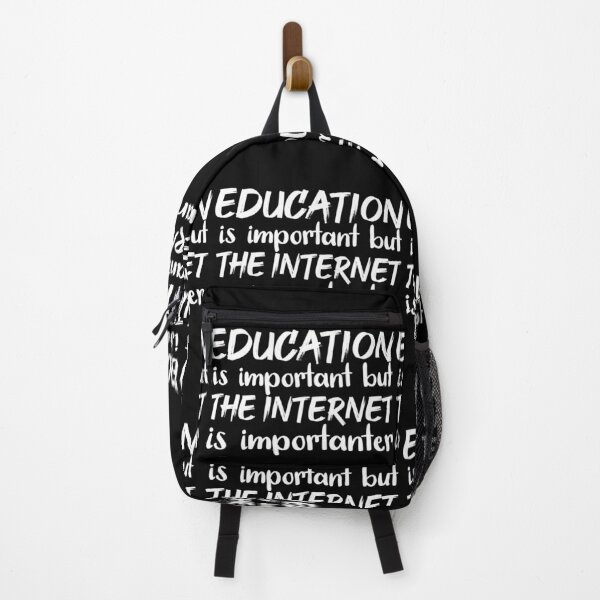 N EDUCATION E
ut is important but i
ET THE INTERNET T
EDUCATION E
is important but i
T THE INTERNET T
is importanter
ut is important but i
THE INTERNET